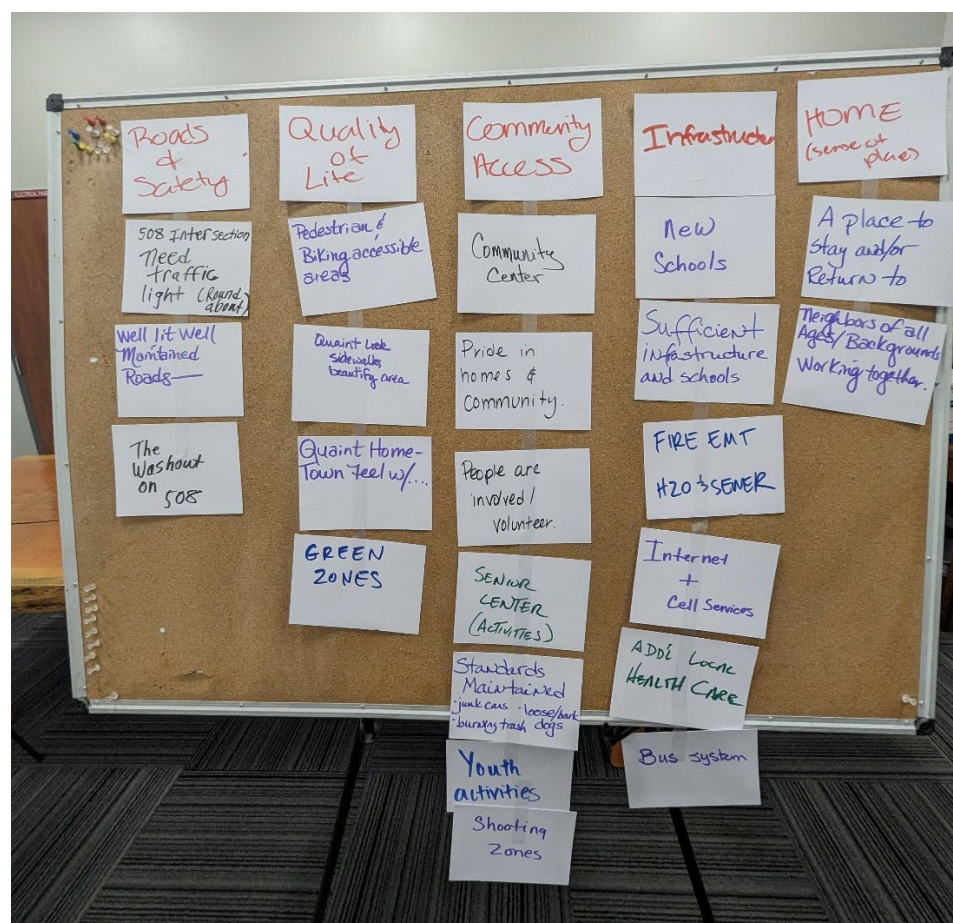 Roads
&
Safety
508 Intersection
Need
traffic
light (Round
about)
Well lit Well
Maintained
Roads—
The
Washout
on
508
Quality
of
Life
Pedestrian &
Biking accessible
areas
Quaint Look
sidewalks
beautify area
Quaint Home-
Town Feel w/...
GREEN
ZONES
Community
Access
Community
Center
Pride in
homes &
community.
People are
involved/
volunteer.
SENIOR
CENTER
(ACTIVITIES)
Standards
Maintained
·junk cars ·loose/bark
·burning trash dogs
Youth
activities
Shooting
Zones
Infrastructure
New
Schools
Sufficient
infastructure
and schools
FIRE EMT
H2O & SEWER
Internet
+
Cell Services
ADD'L LOCAL
HEALTH CARE
Bus system
HOME
(sense of
place)
A place to
Stay and/or
Return to
Neighbors of all
Ages/Backgrounds
Working together.